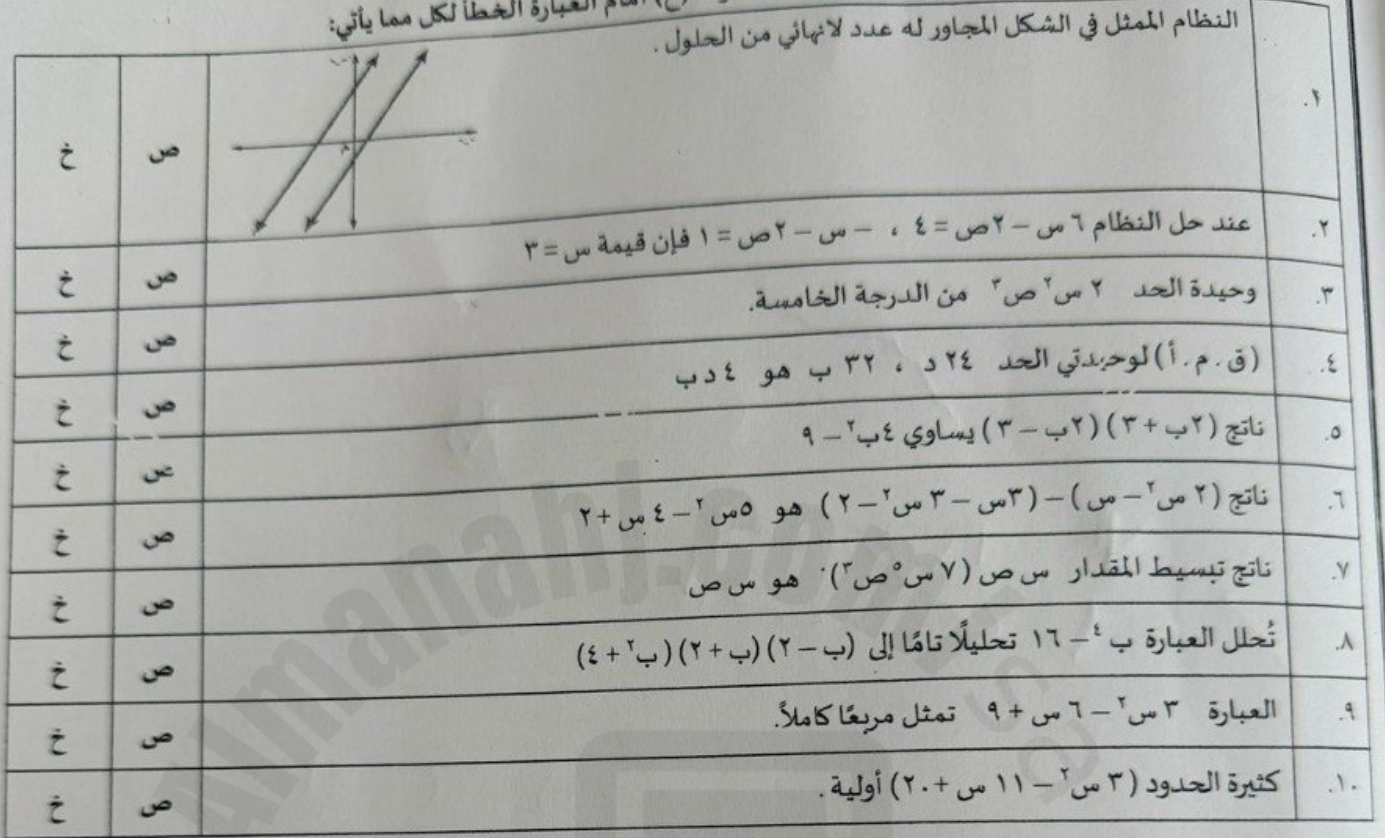 أمام العبارة الخطأ لكل مما يأتي:
١. النظام الممثل في الشكل المجاور له عدد لانهائي من الحلول. ص خ
٢. عند حل النظام ٦ س – ٢ص = ٤ ، – س – ٢ص = ١ فإن قيمة س = ٣ ص خ
٣. وحيدة الحد ٢ س٢ ص٣ من الدرجة الخامسة. ص خ
٤. (ق . م . أ) لوحيدتي الحد ٢٤ د ، ٣٢ ب هو ٤ د ب ص خ
٥. ناتج (٢ب + ٣) (٢ب – ٣) يساوي ٤ب٢ – ٩ ص خ
٦. ناتج (٢ س٢ – س) – (٣س – ٣ س٢ – ٢) هو ٥س٢ – ٤ س + ٢ ص خ
٧. ناتج تبسيط المقدار س ص (٧ س٥ ص٣)٠ هو س ص ص خ
٨. تُحلل العبارة ب٤ – ١٦ تحليلًا تامًا إلى (ب – ٢) (ب + ٢) (ب٢ + ٤) ص خ
٩. العبارة ٣ س٢ – ٦ س + ٩ تمثل مربعًا كاملاً. ص خ
١٠. كثيرة الحدود (٣ س٢ – ١١ س + ٢٠) أولية. ص خ
Amanahj.com